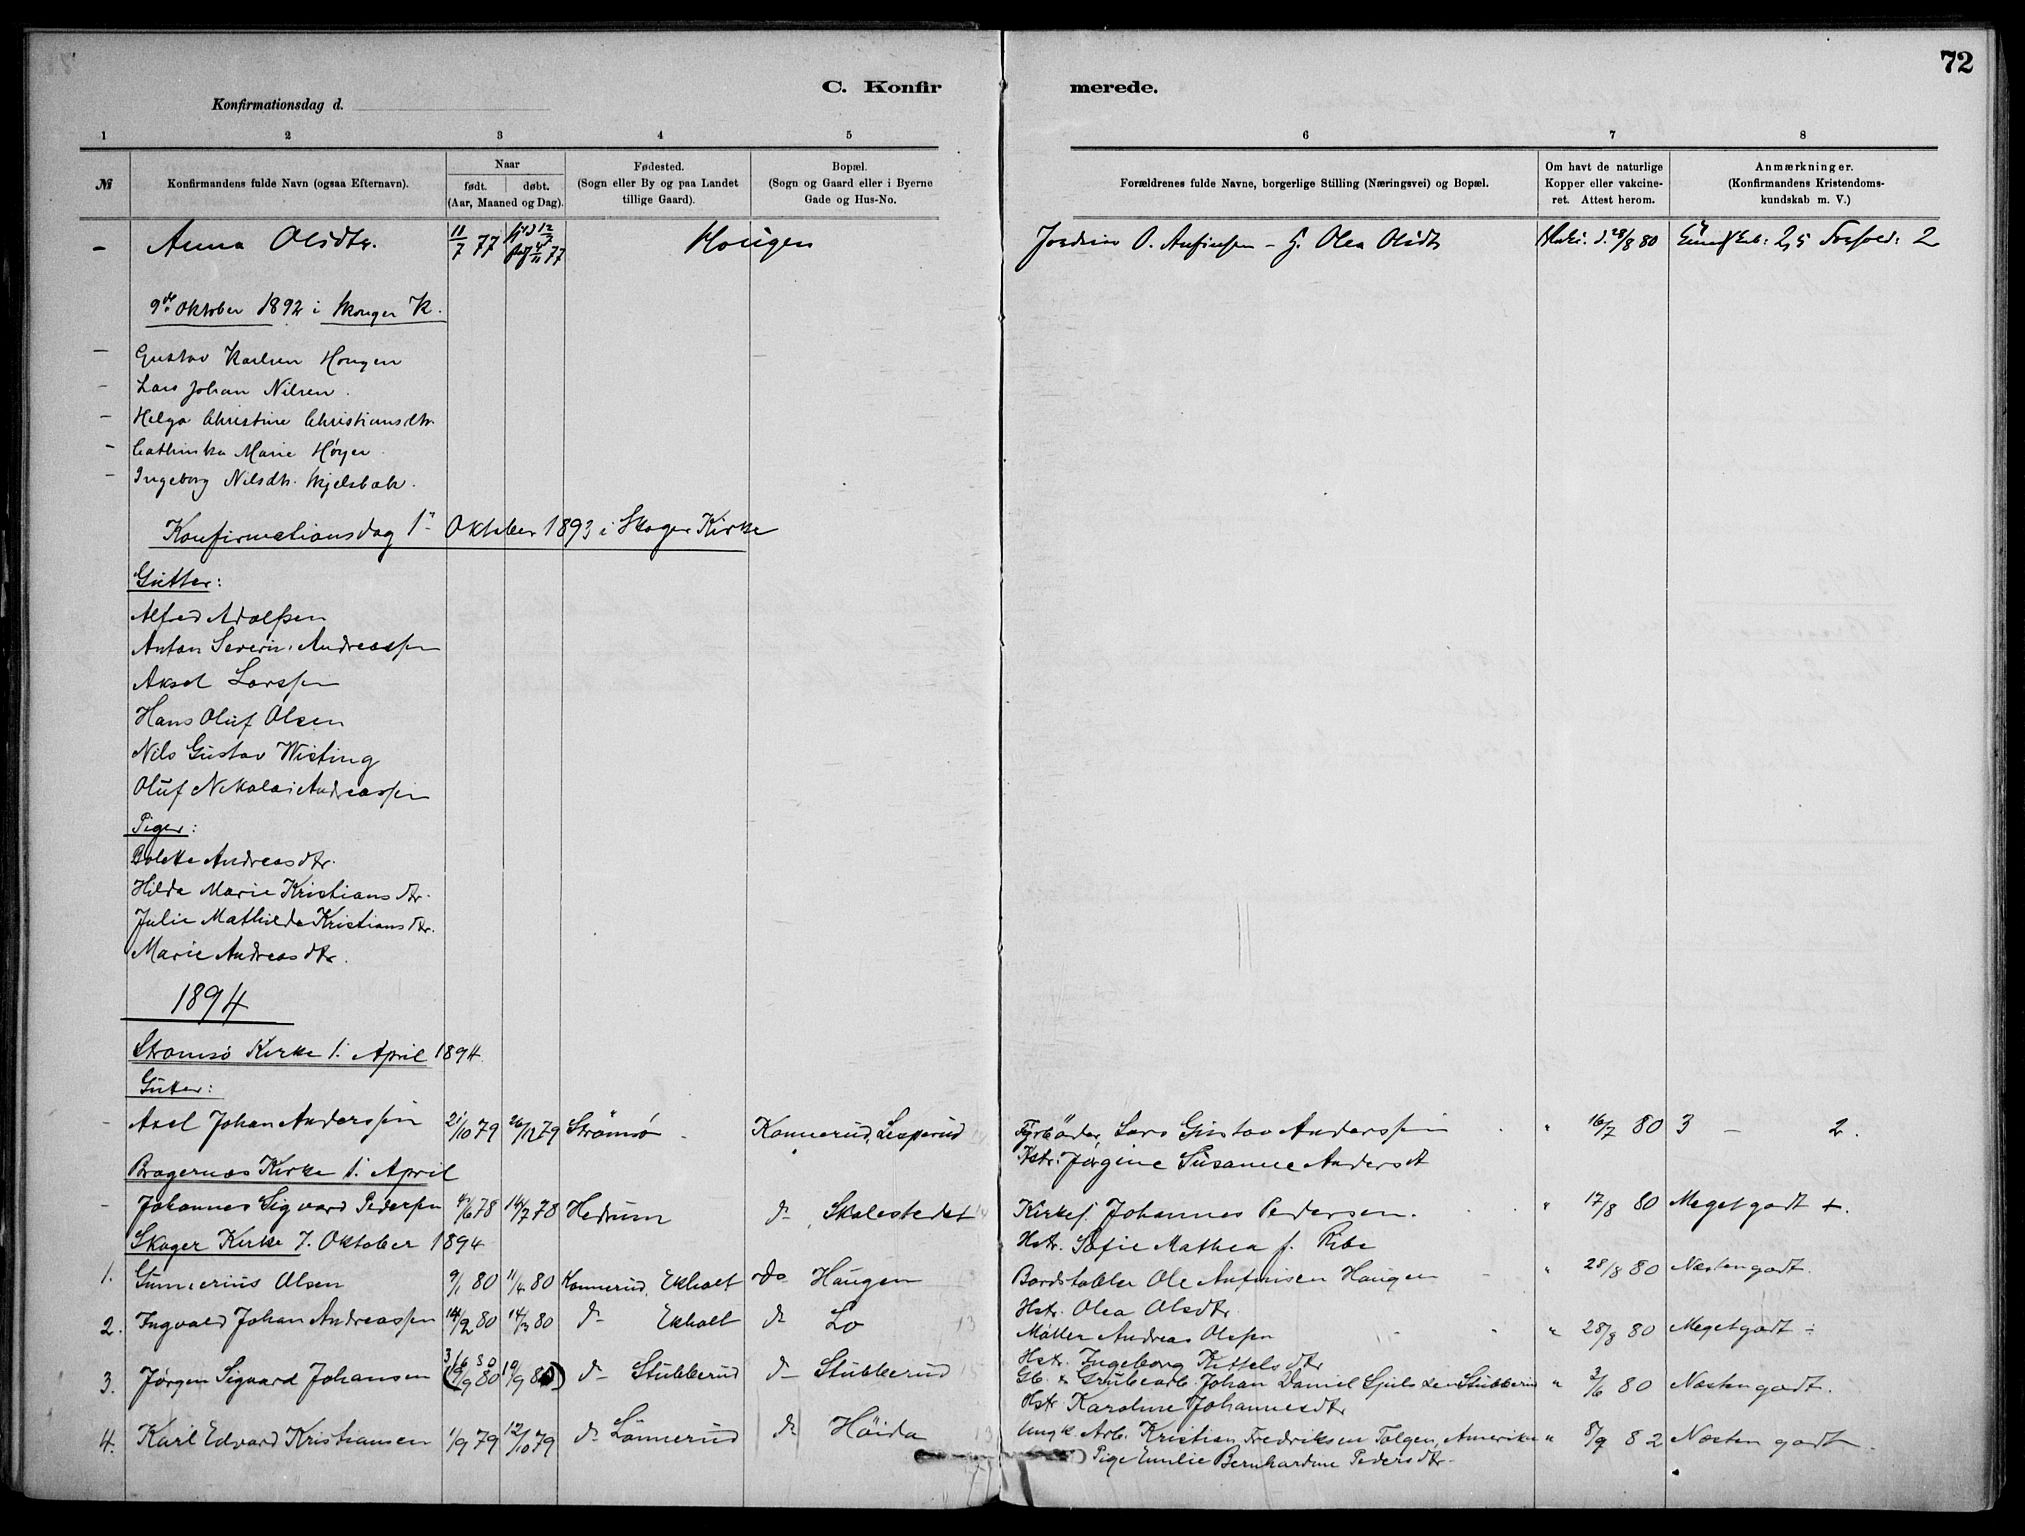 72
C. Konfirmerede.
Konfirmationsdag d.
1 2 3 4 5 6 7 8
№ Konfirmandens fulde Navn (ogsaa Efternavn). Naar født. døbt. (Aar, Maaned og Dag). Fødested. (Sogn eller By og paa Landet tillige Gaard). Bopæl. (Sogn og Gaard eller i Byerne Gade og Hus-No. Forældrenes fulde Navne, borgerlige Stilling (Næringsvei) og Bopæl. Om havt de naturlige Kopper eller vakcineret. Attest herom. Anmærkninger. (Konfirmandens Kristendomskundskab m. V.)
– Anna Olsdtr. 11/7 77 4/11 77 Hougen O. Anfinsen – Olea Olsdtr 28/8 80 2,5 2
9de Oktober 1892 i Skouger K.
– Gustav Karlsen Hougen
– Lars Johan Nilsen
– Helga Christine Christiansdtr.
– Cathinka Marie Høyer
– Ingeborg Nilsdtr. Kjelsbæk.
Konfirmationsdag 1ste Oktober 1893 i Skoger Kirke
Gutter:
Alfred Adolfsen
Anton Severin Andreassen
Aksel Larssen
Hans Oluf Olsen
Nils Gustav Wisting
Oluf Nikolai Andreassen
Piger:
Bolette Andreasdtr.
Hilda Marie Kristiansdtr.
Julie Mathilde Kristiansdtr.
Marie Andreasdtr.
1894
Strømsø Kirke 1. April 1894
Gutter:
– Axel Johan Anderssen 21/10 79 26/12 79 Strømsø Konnerud, Lesperud Fyrbøder Lars Gustav Anderssen " 16/7 80 3 – 2.
Hstr. Jørgine Susanne Andersdt
Bragernæs Kirke 1. April
– Johannes Sigvard Pedersen 4/6 78 14/7 78 Hedrum do Skalestedet 14 Kirkes. Johannes Pedersen. " 17/8 80 Meget godt +.
Hstr. Sofie Mathea f. Ribe
Skoger Kirke 7. Oktober 1894
1. Gunnerius Olsen 9/1 80 11/4 80 Konnerud, Ekholt do Haugen 13 Bordstabler Ole Anfinsen Haugen " 28/8 80 Næsten godt.
Hstr. Olea Olsdtr.
2. Ingvald Johan Andreassen 14/2 80 14/3 80 do Ekholt do Lo 13 Møller Andreas Olssen " 28/8 80 Meget godt ÷
Hstr. Ingeborg Kittelsdtr
3. Jørgen Sigvard Johansen 3/6 80 (19/9 80 19/9 80) do Stubberud do Stubberud 15 Gb. & Grubearb. Johan Daniel Stubberud " 3/6 80 Næsten godt.
Hstr Karoline Johannesdtr
4. Karl Edvard Kristiansen 1/9 79 12/10 79 do Lønnerud do Høida 13 Ungk. Arb. Kristian Fredriksen Tolgen, Amerika " 8/9 82 Næsten godt.
Pige Emilie Bernhardine Pedersdtr.